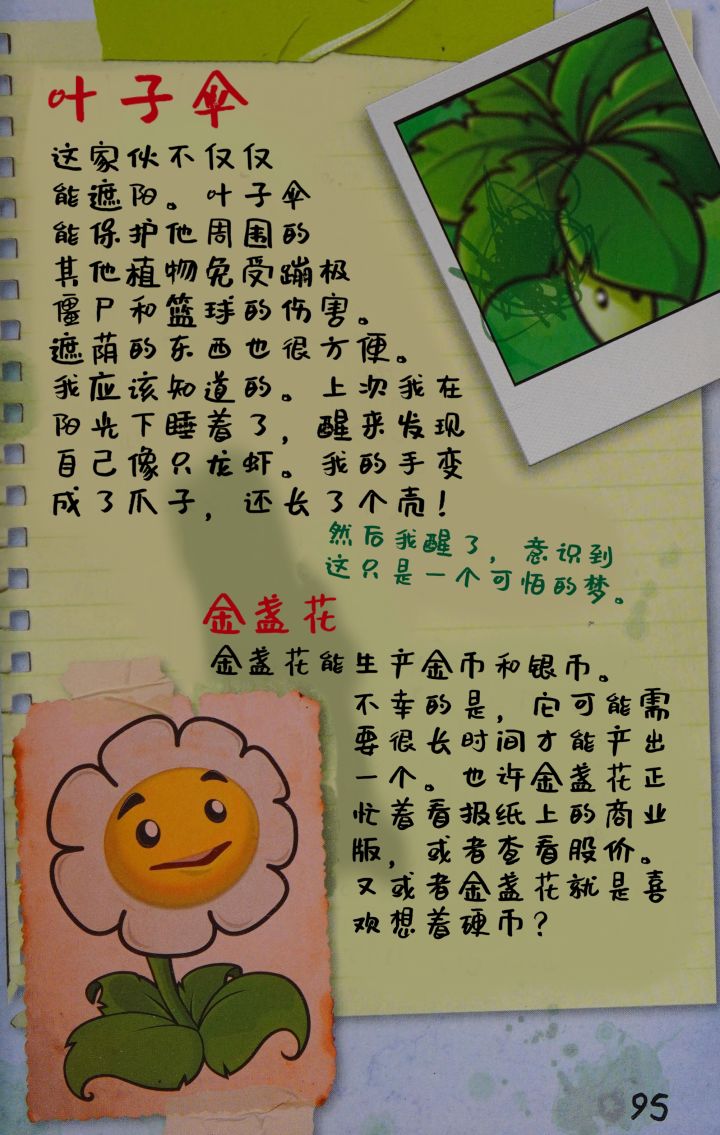 叶子伞
这家伙不仅仅
能遮阳。叶子伞
能保护他周围的
其他植物免受蹦极
僵尸和篮球的伤害。
遮荫的东西也很方便。
我应该知道的。上次我在
阳光下睡着了，醒来发现
自己像只龙虾。我的手变
成了爪子，还长了个壳！
然后我醒了，意识到
这只是一个可怕的梦。
金盏花
金盏花能生产金币和银币。
不幸的是，它可能需
要很长时间才能产出
一个。也许金盏花正
忙着看报纸上的商业
版，或者查看股价。
又或者金盏花就是喜
欢想着硬币？
95